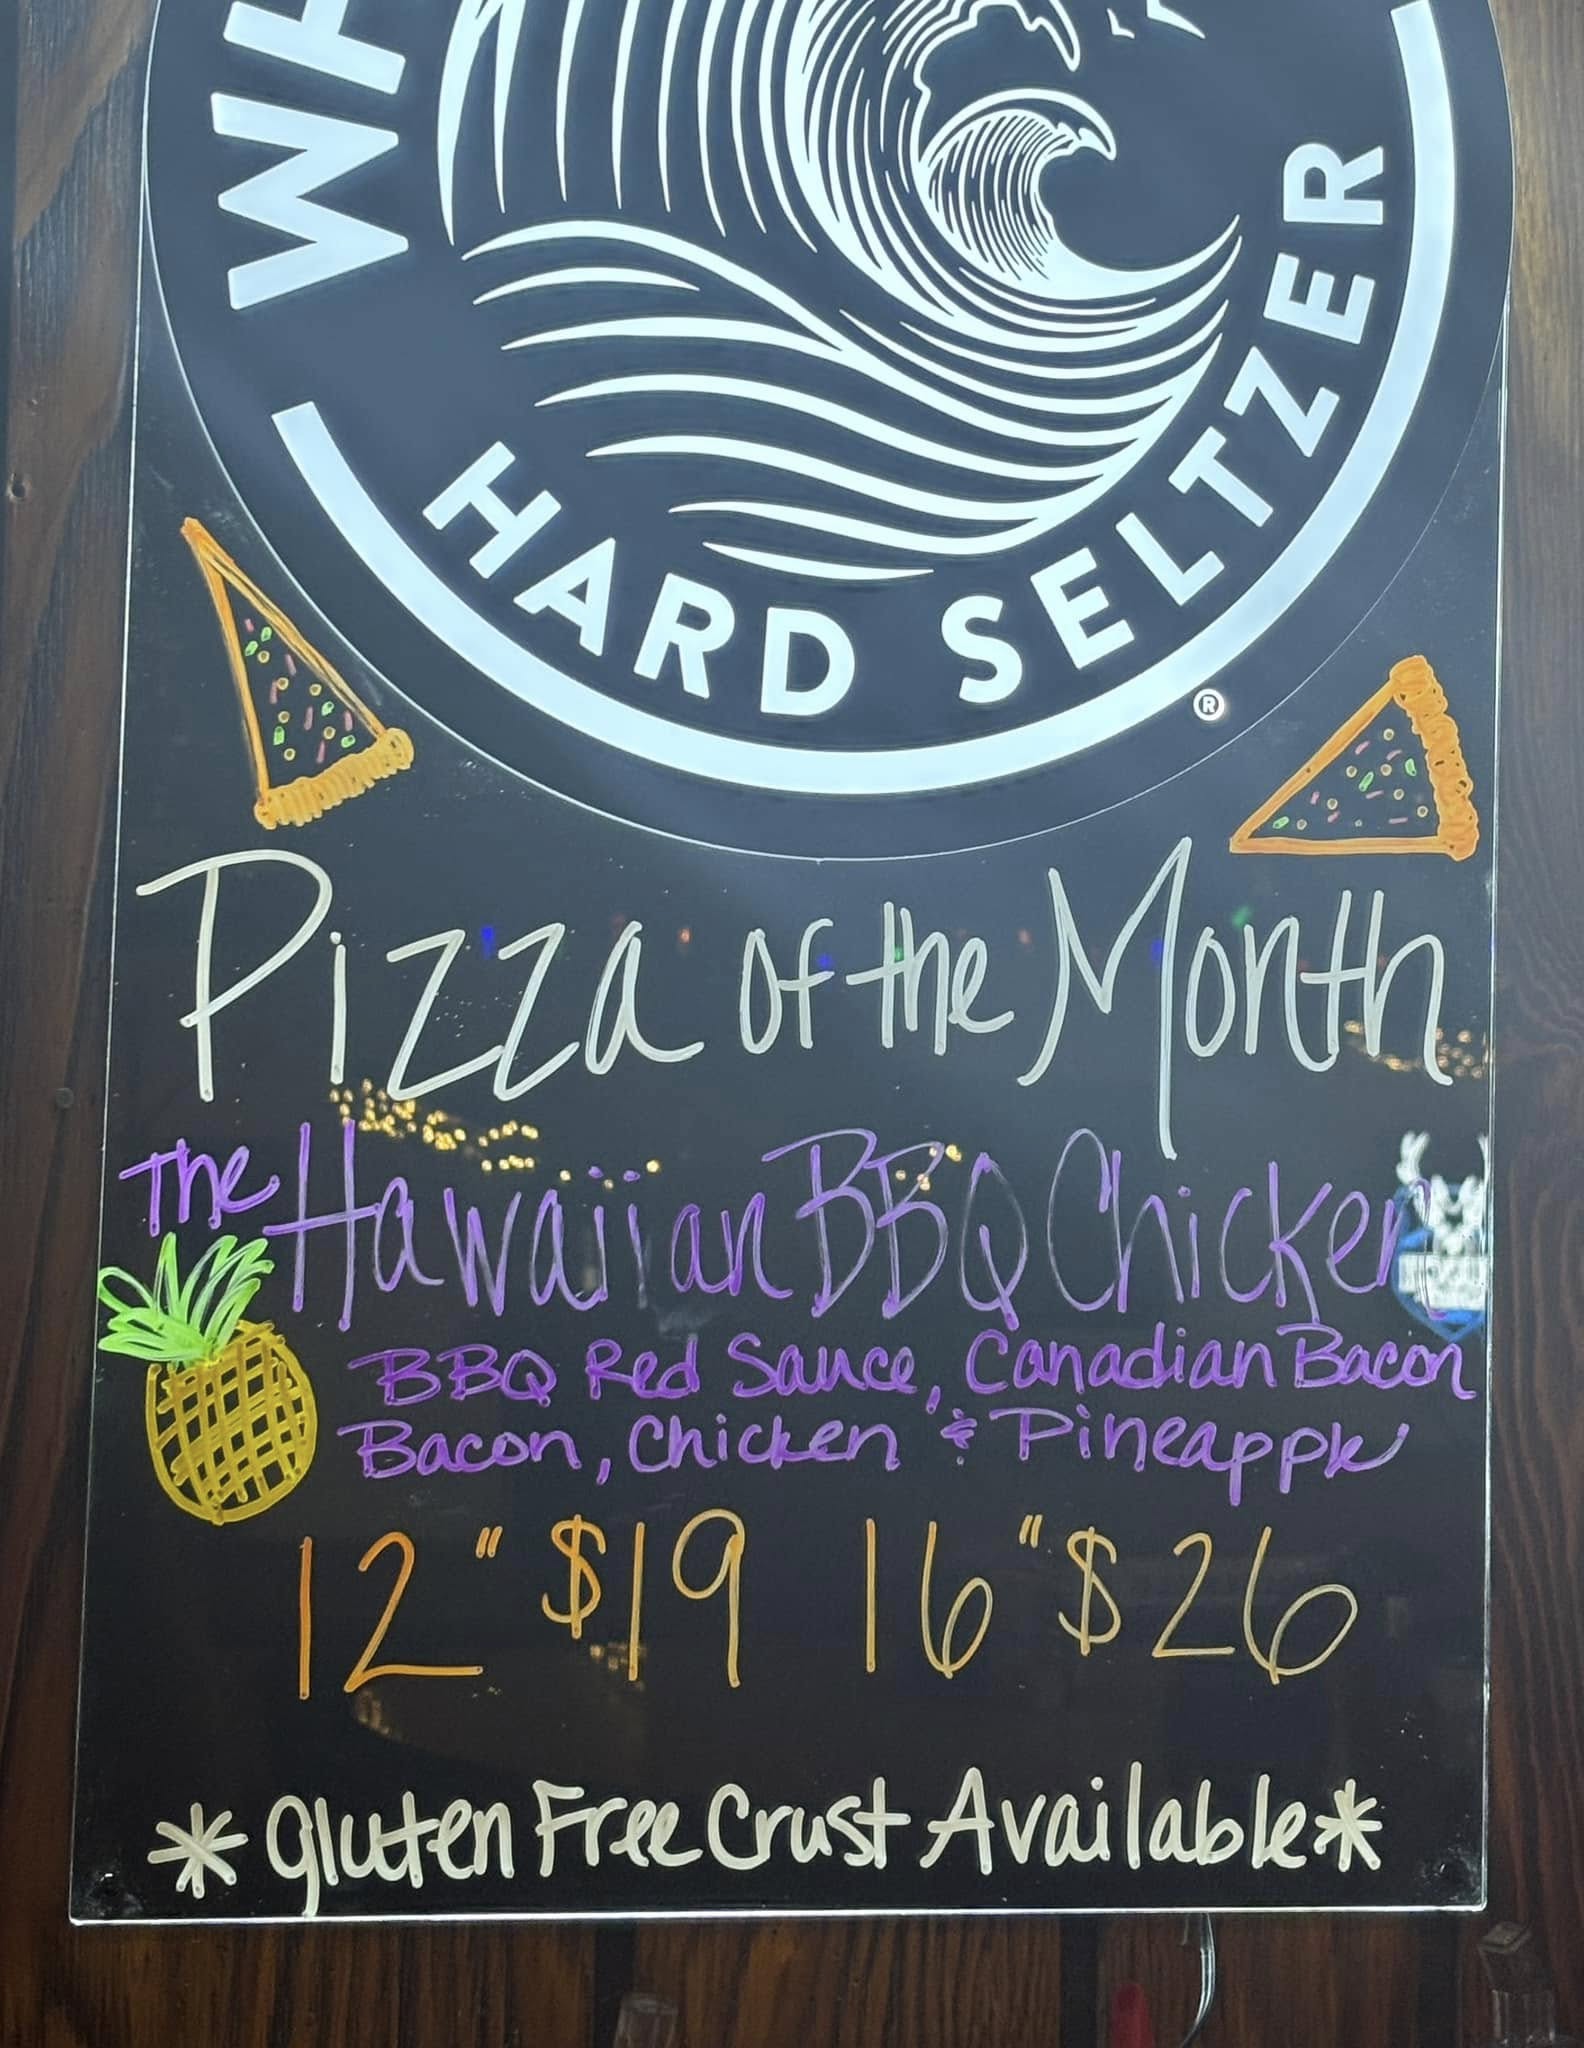 WH
HARD SELTZER
®
Pizza of the Month
The Hawaiian BBQ Chicken
BBQ Red Sauce, Canadian Bacon
Bacon, Chicken & Pineapple
12" $19 16" $26
*Gluten Free Crust Available*